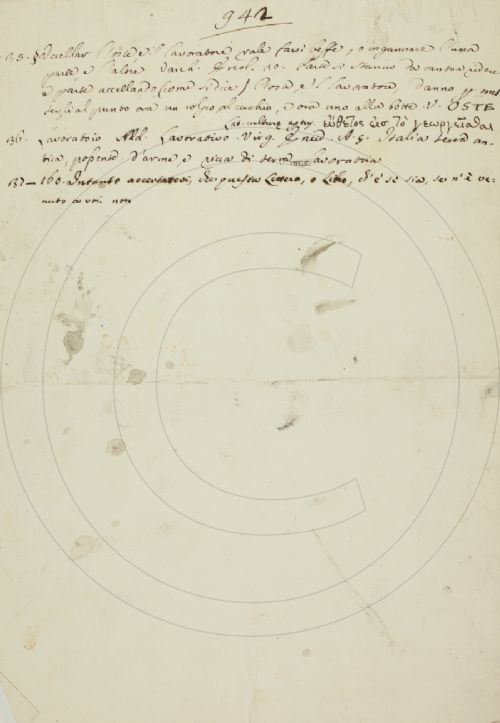 942
35. § Uccellar l'Oste e 'l Lavoratore, vale farsi beffe, o ingannare l'una
parte e l'altra. Varch. Ercol. 10. Parte si stanno da canto a udere
e parte uccellando (come si dice) l'Oste e 'l Lavoratore, danno
segli al punto ora un colpo al cerchio, e ora uno alla botte. V. OSTE
36. Lavoratoio Add. Lavorativo. Virg. Eneid. A 5. Italia terra an-
tica, possente d'arme e ricca di terra lavoratoia
137 — 160. Intanto accertatevi, che questa Lettera, o Libro, ch'e' si sia, se n'è ve-
nuto a voi non